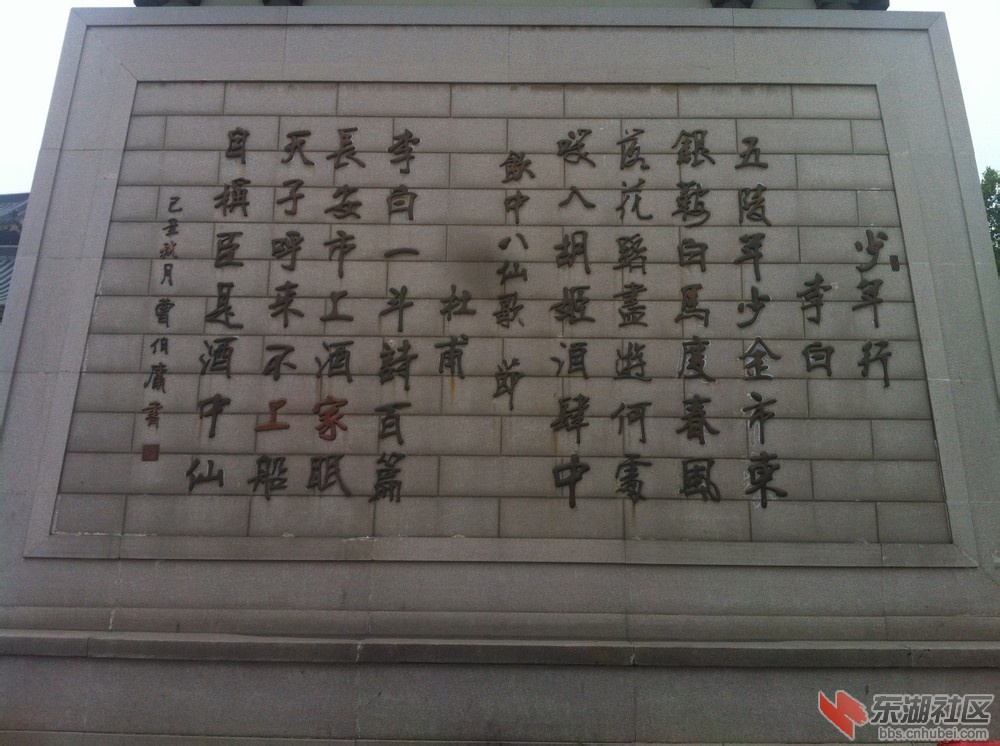 少年行
李白
五陵年少金市東
銀鞍白馬度春風
落花踏盡遊何處
笑入胡姬酒肆中
飲中八仙歌 節
杜甫
李白一斗詩百篇
長安市上酒家眠
天子呼來不上船
自稱臣是酒中仙
己丑秋月曾伯庸書
东湖社区
bbs.cnhubei.com